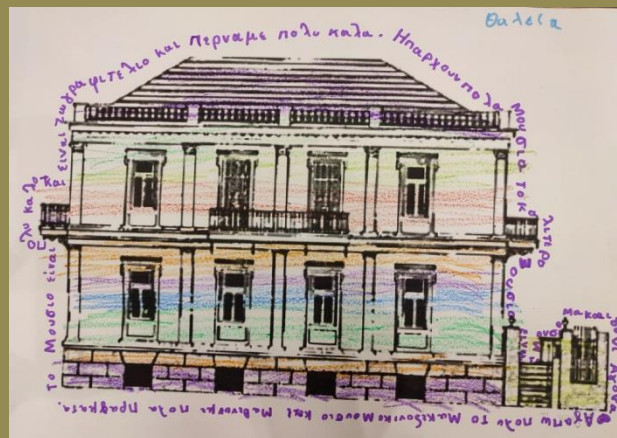 Θαλεία
Το Μουσιο είναι πολυ καλο και είναι ζωγραφιτελιο και περναμε πολυ καλα. Ηπαρχουν πολα μουσια το κ λιτερο
μουσιο είναι
Αγαπω πολυ το Μακεδονικο Μουσιο και Μαθενουμε πολα πραγματα.